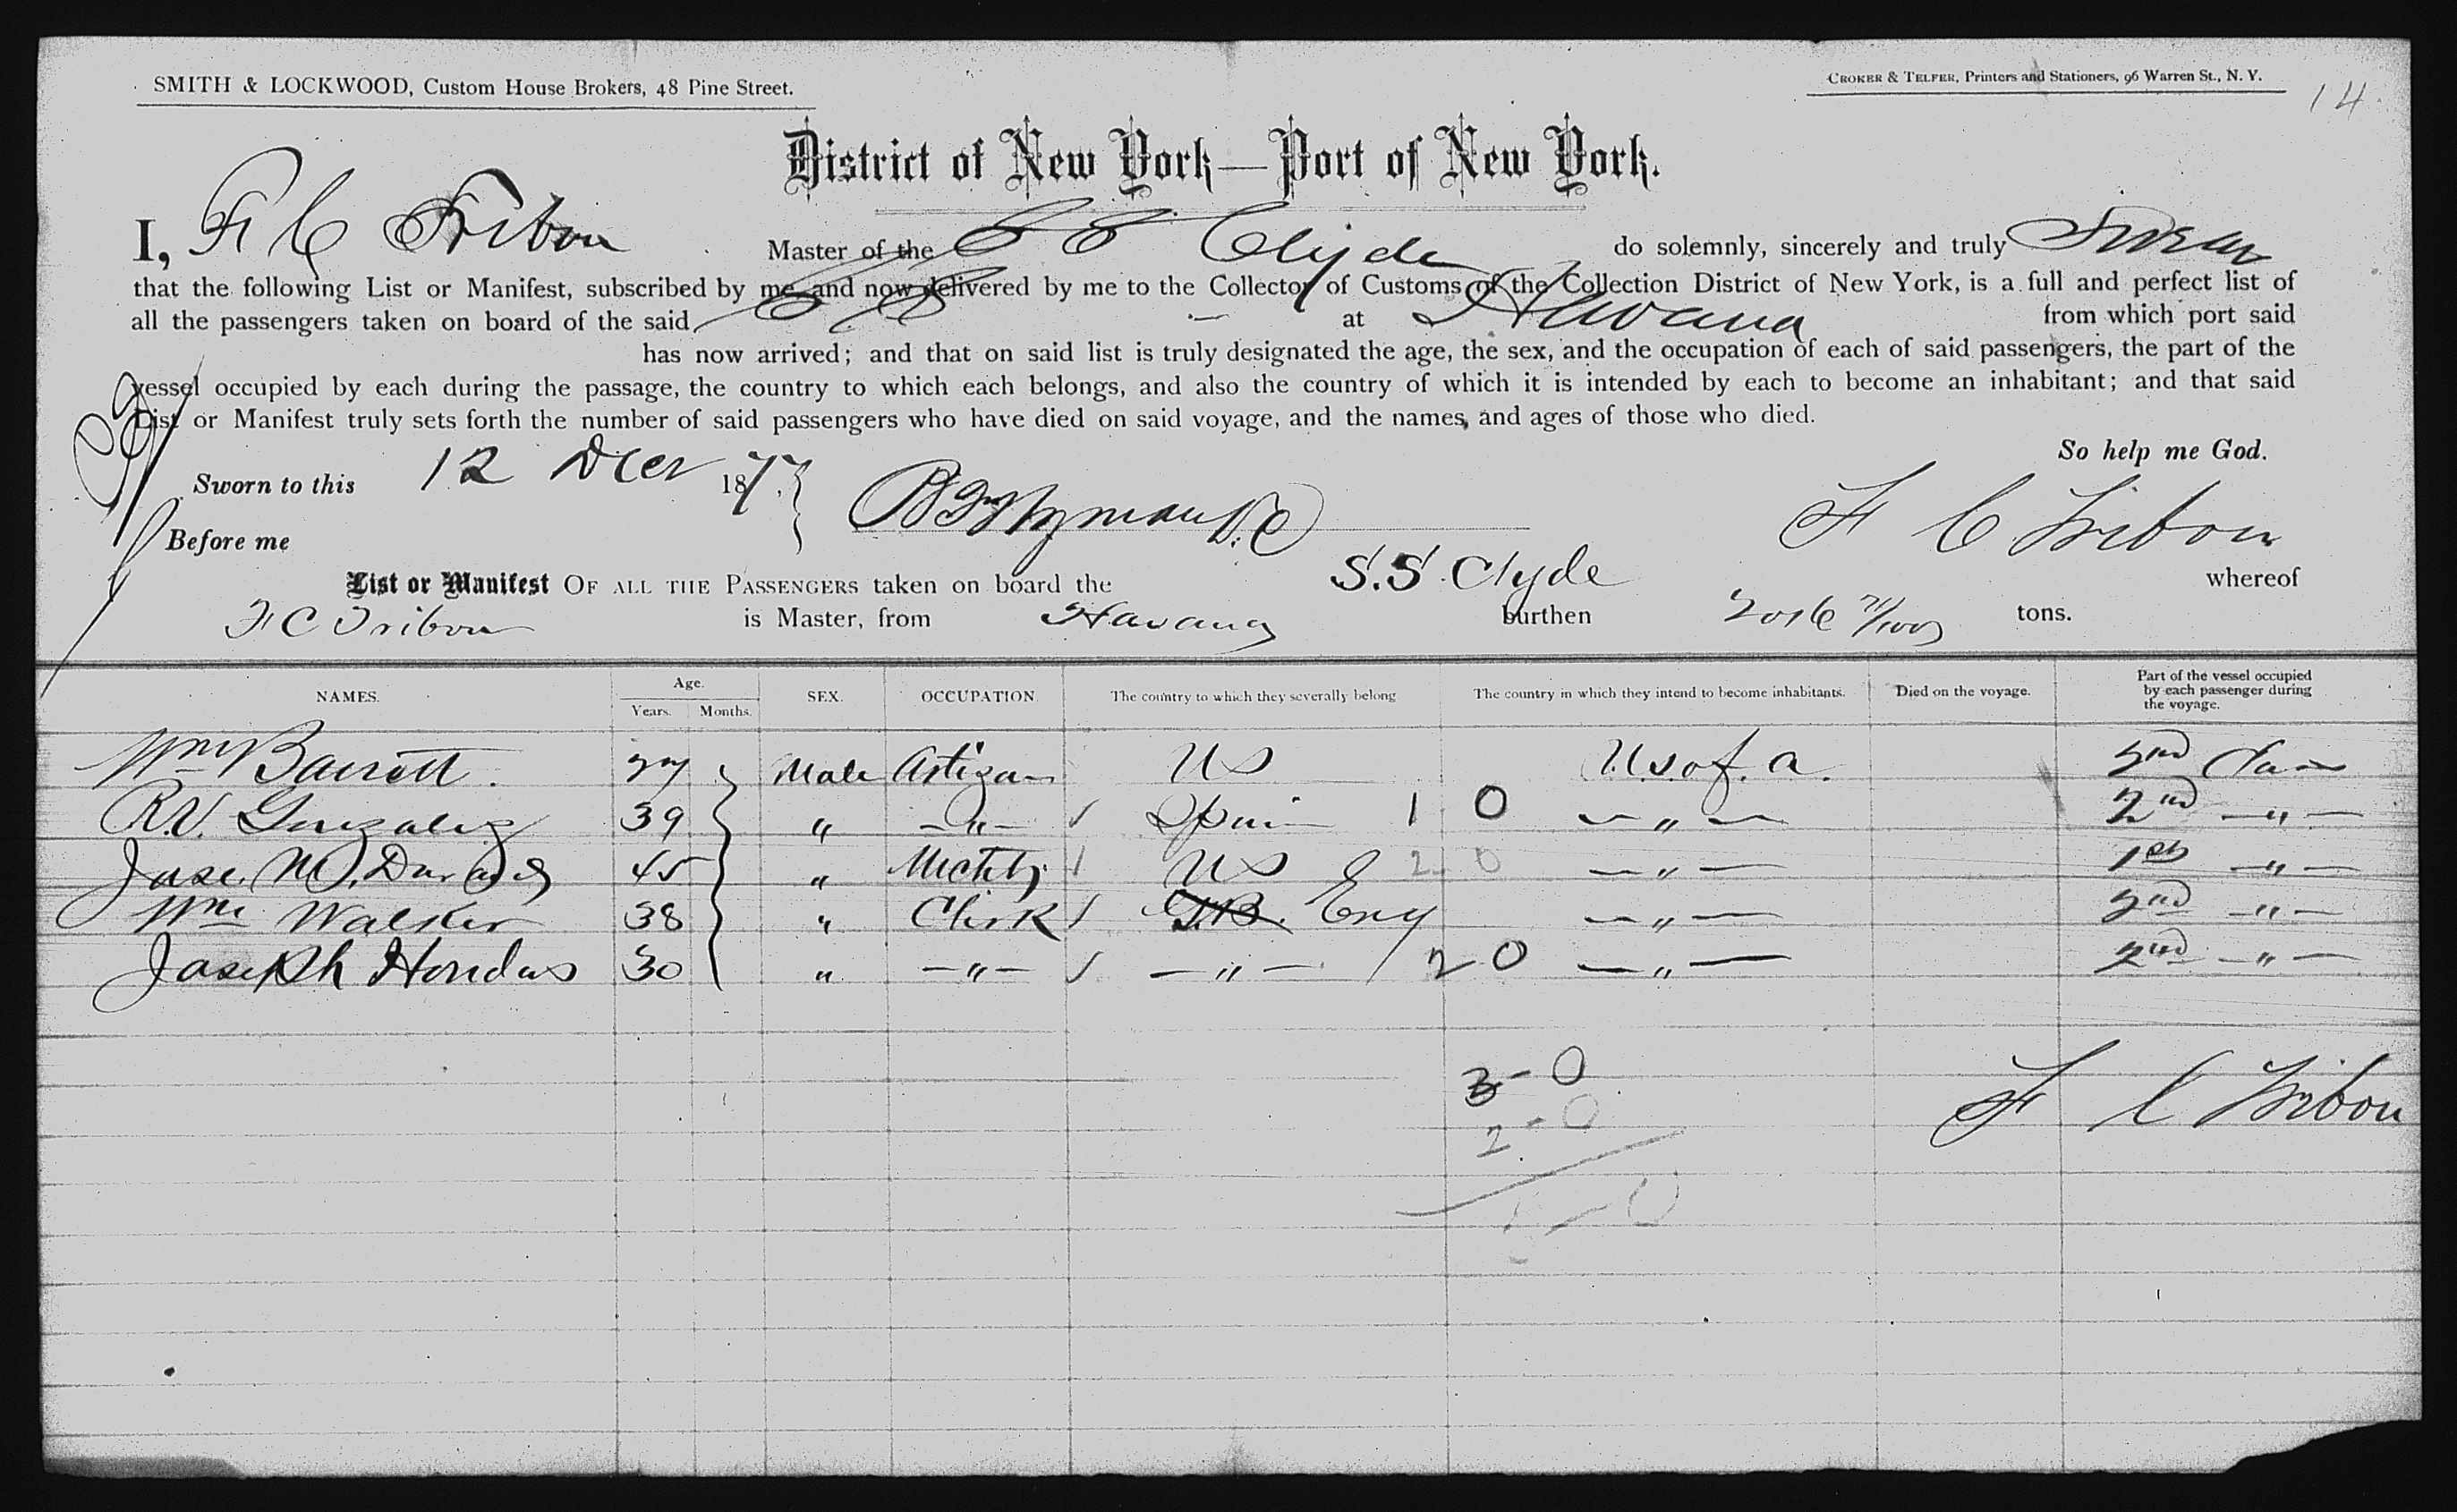 SMITH & LOCKWOOD, Custom House Brokers, 48 Pine Street.
CROKER & TELFER, Printers and Stationers, 96 Warren St., N. Y.
14
District of New York—Port of New York.
I, F C Tribou Master of the S S Clyde do solemnly, sincerely and truly Swear
that the following List or Manifest, subscribed by me and now delivered by me to the Collector of Customs of the Collection District of New York, is a full and perfect list of
all the passengers taken on board of the said S.S. at Havana from which port said
has now arrived; and that on said list is truly designated the age, the sex, and the occupation of each of said passengers, the part of the
vessel occupied by each during the passage, the country to which each belongs, and also the country of which it is intended by each to become an inhabitant; and that said
List or Manifest truly sets forth the number of said passengers who have died on said voyage, and the names, and ages of those who died.
So help me God.
Sworn to this 12 Decr 1877.
F C Tribou
Before me
List or Manifest OF ALL THE PASSENGERS taken on board the S.S. Clyde whereof
F C Tribou is Master, from Havana burthen 2016 71/100 tons.
NAMES. Age. Years. Months. SEX. OCCUPATION. The country to which they severally belong The country in which they intend to become inhabitants. Died on the voyage. Part of the vessel occupied by each passenger during the voyage.
Wm Barrett. 27 Male Artizan US U.S of. A. 2nd Class
R.V. Gonzalez 39 " —"— Spain 1 0 —"— 2nd —"—
Jose. M. 45 " US 2 0 —"— 1st —"—
Wm Walker 38 " Clerk G.B. Eng —"— 2nd —"—
Joseph Hondus 30 " —"— —"— 2 0 —"— 2nd —"—
3-0
2-0
F C Tribou